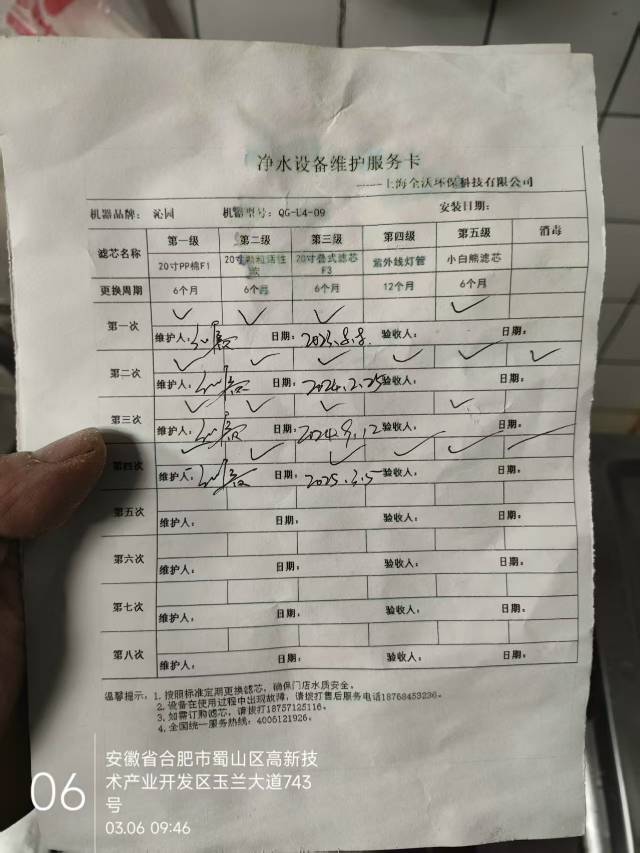 净水设备维护服务卡
-----上海全沃环保科技有限公司
机器品牌: 沁园 机器型号: QG-U4-09 安装日期:
滤芯名称 第一级 第二级 第三级 第四级 第五级 消毒
20寸PP棉F1 20寸颗粒活性炭 20寸叠式滤芯F3 紫外线灯管 小白熊滤芯
更换周期 6个月 6个月 6个月 12个月 6个月
第一次 ✓ ✓ ✓ ✓
维护人: 日期: 2023.8.8. 验收人: 日期:
第二次 ✓ ✓ ✓ ✓ ✓ ✓
维护人: 日期: 2024.2.25 验收人: 日期:
第三次 ✓ ✓ ✓ ✓
维护人: 日期: 2024.9.12 验收人: 日期:
第四次 ✓ ✓ ✓ ✓ ✓
维护人: 日期: 2025.3.5 验收人: 日期:
第五次
维护人: 日期: 验收人: 日期:
第六次
维护人: 日期: 验收人: 日期:
第七次
维护人: 日期: 验收人: 日期:
第八次
维护人: 日期: 验收人: 日期:
温馨提示: 1. 按照标准定期更换滤芯，确保门店水质安全。
2. 设备在使用过程中出现故障，请拨打售后服务电话18768453236。
3. 如需订购滤芯，请拨打18757125116。
4. 全国统一服务热线: 4006121926。
06
安徽省合肥市蜀山区高新技
术产业开发区玉兰大道743
号
03.06 09:46